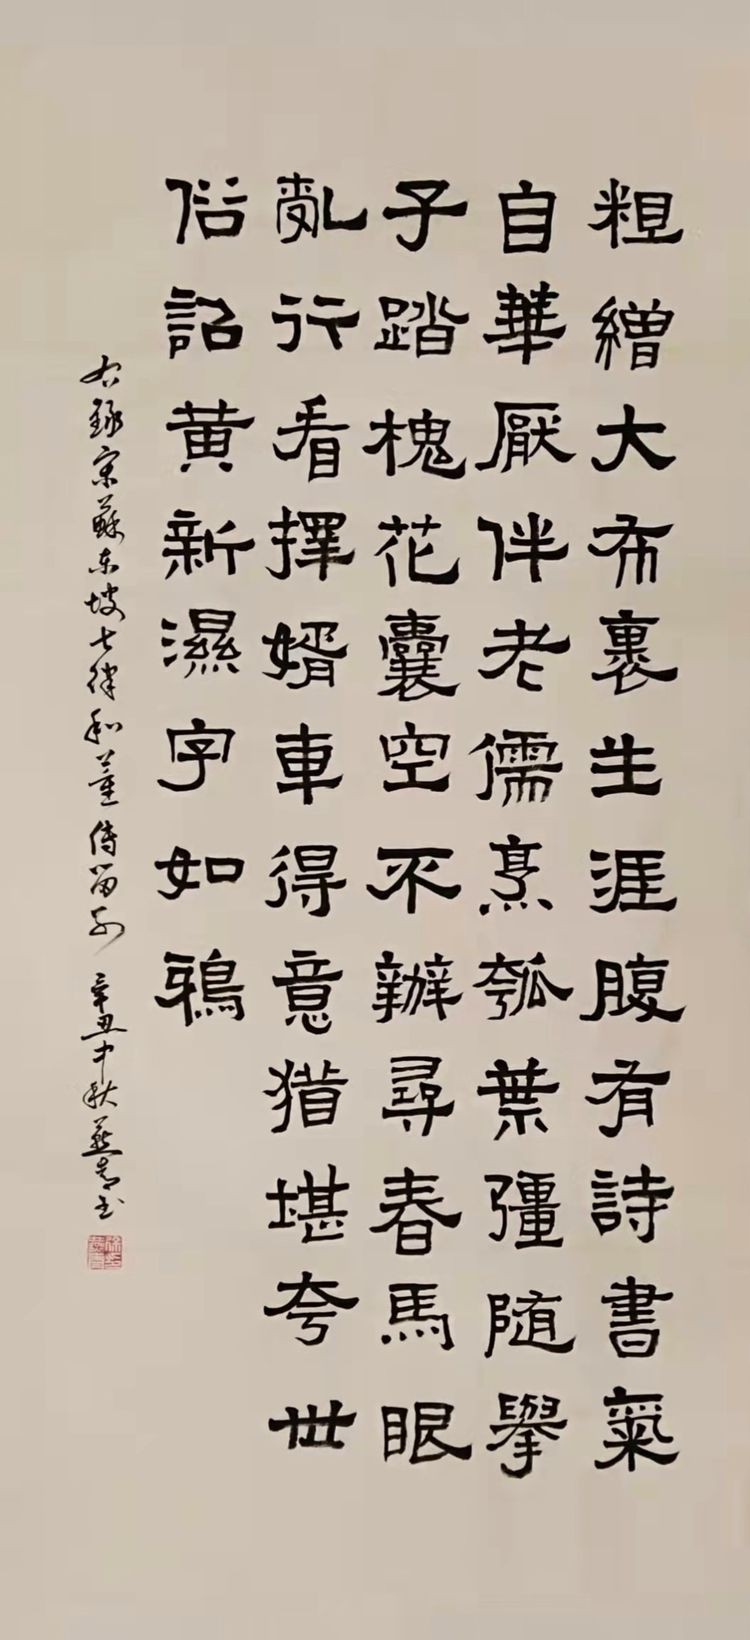 粗繒大布裹生涯腹有詩書氣
自華厭伴老儒烹瓠葉彊随擧
子踏槐花囊空不辦尋春馬眼
亂行看擇婿車得意猶堪夸世
俗詔黄新濕字如鴉
右録宋蘇東坡七律和董傳留別 辛丑中秋